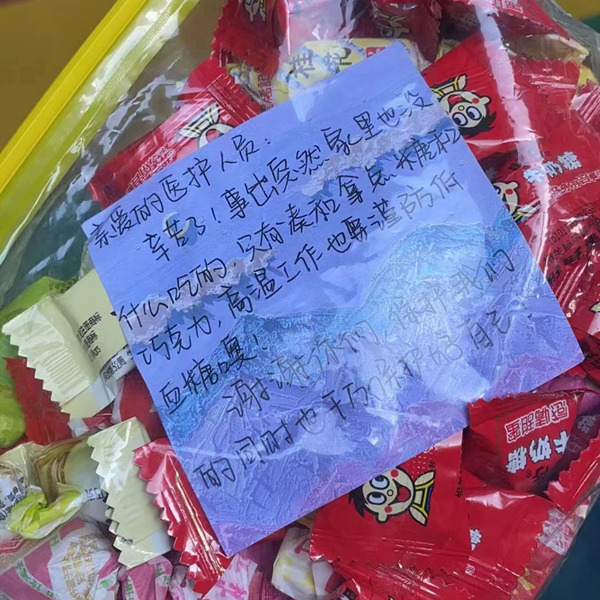 亲爱的医护人员:
辛苦了!事出突然家里也没
什么吃的,只有凑和拿点糖和
巧克力,高温工作也要谨防低
血糖噢!
谢谢你们,保护我们
的同时也千万保护好自己
牛奶糖